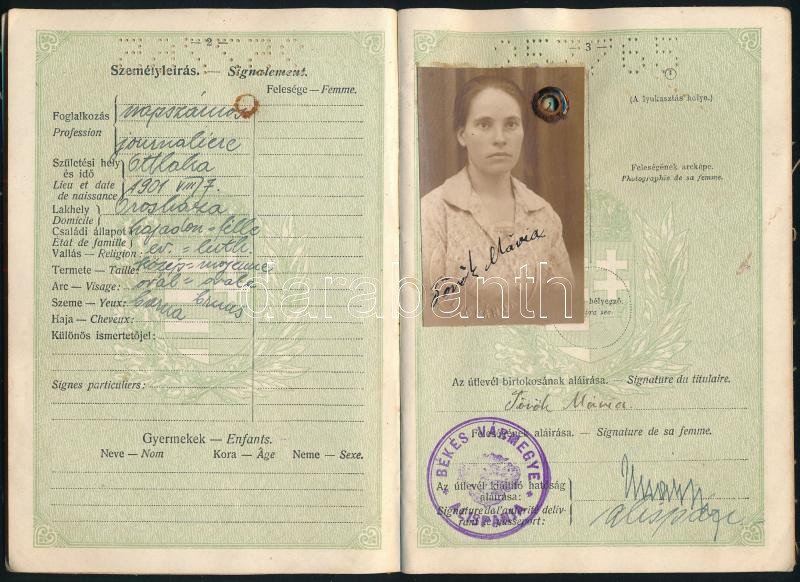 — 2 —
Személyleírás. — Signalement.
Felesége — Femme.
Foglalkozás napszámos
Profession journalière
Születési hely
és idő
Lieu et date 1901 VIII/7.
de naissance
Lakhely Orosháza
Domicile
Családi állapot hajadon = fille
État de famille
Vallás — Religion: ev. = luth.
Termete — Taille: közép = moyenne
Arc — Visage: ovál = ovale
Szeme — Yeux: barna bruns
Haja — Cheveux:
Különös ismertetőjel:
Signes particuliers:
Gyermekek — Enfants.
Neve — Nom Kora — Âge Neme — Sexe.
— 3 —
(A lyukasztás helye.)
Feleségének arcképe.
Photographie de sa femme.
Török Mária
hélyegző.
Az útlevél birtokosának aláírása. — Signature du titulaire.
Török Mária
Feleségének aláírása. — Signature de sa femme.
BÉKÉS VÁRMEGYE
ALISPÁNJA
Az útlevél kiállító hatóság
aláírása:
Signature de l'autorité déliv-
rant le passeport:
alispán
darabanth.com